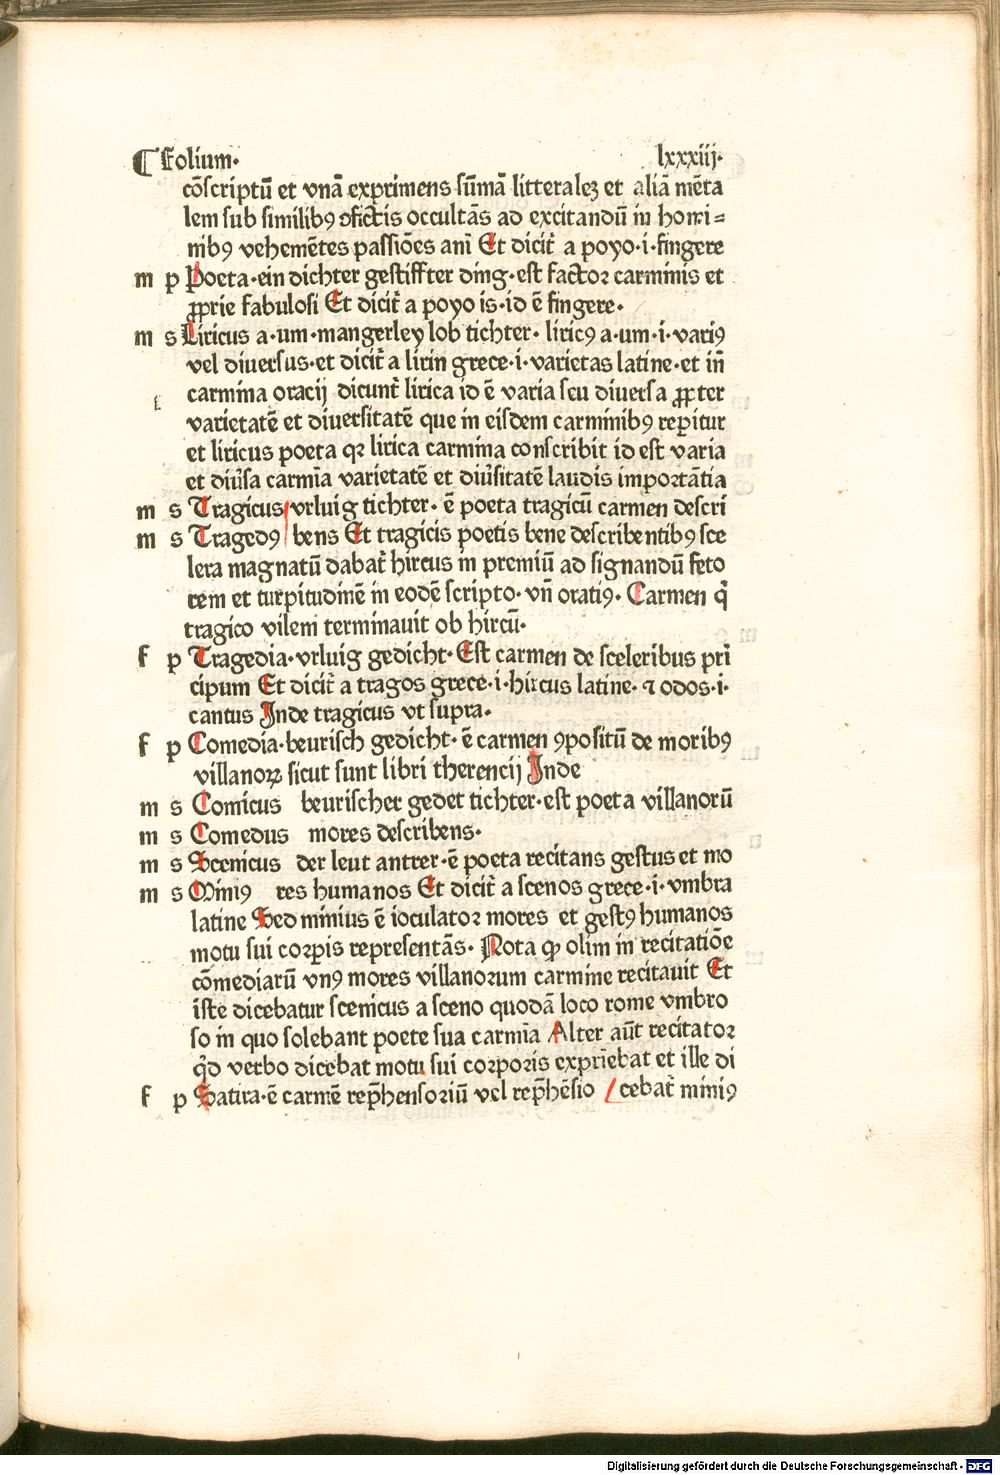 ¶ Folium. lxxxiij.
cōscriptū et vnā exprimens sūmā litteralez et aliā mēta
lem sub similibꝰ ꝯfictis occultās ad excitandū in homi⸗
nibꝰ vehemētes passiões ani Et dicit̃ a poyo·i·fingere
m p Poeta·ein dichter gestiffter ding·est factoꝛ carminis et
ꝓprie fabulosi Et dicit̃ a poyo is·id ē fingere·
m s Liricus a·um·mangerley lob tichter· liricꝰ a·um·i·variꝰ
vel diuersus·et dicit̃ a lirin grece·i·varietas latine·et in̄
carmina oracij dicunt̃ lirica id ē varia seu diuersa ꝓpter
varietatē et diuersitatē que in eisdem carminibꝰ reꝑitur
et liricus poeta qꝛ lirica carmina conscribit id est varia
et diũsa carmīa varietatē et diũsitatē laudis impoꝛtātia
m s Tragicus vrluig tichter· ē poeta tragicū carmen descri
m s Tragedꝰ bens Et tragicis poetis bene describentibꝰ sce
lera magnatū dabat̃ hircus in premiū ad signandū feto
rem et turpitudinē in eodē scripto· vn̄ oratiꝰ· Carmen q̃
tragico vilem terminauit ob hircū·
f p Tragedia·vrluig gedicht·Est carmen de sceleribus pri
cipum Et dicit̃ a tragos grece·i·hircus latine· ⁊ odos·i·
cantus Inde tragicus vt supra·
f p Comedia·beurisch gedicht·ē carmen ꝯpositū de moribꝰ
villanoꝝ sicut sunt libri therencij Inde
m s Comicus beurischer gedet tichter·est poeta villanorū
m s Comedus mores describens·
m s Scenicus der leut antrer·ē poeta recitans gestus et mo
m s Miniꝰ res humanos Et dicit̃ a scenos grece·i·vmbra
latine Sed minius ē ioculatoꝛ mores et gestꝰ humanos
motu sui coꝛꝑis representās· Nota ꝙ olim in recitatiõe
cōmediarū vnꝰ mores villanoꝛum carmine recitauit Et
iste dicebatur scenicus a sceno quodā loco rome vmbro
so in quo solebant poete sua carmīa Alter aūt recitatoꝛ
qd̃ verbo dicebat motu sui coꝛpoꝛis expriebat et ille di
f p Satira·ē carmē rep̄hensoꝛiū vel rep̄hēsio cebat̃ miniꝰ
Digitalisierung gefördert durch die Deutsche Forschungsgemeinschaft - DFG